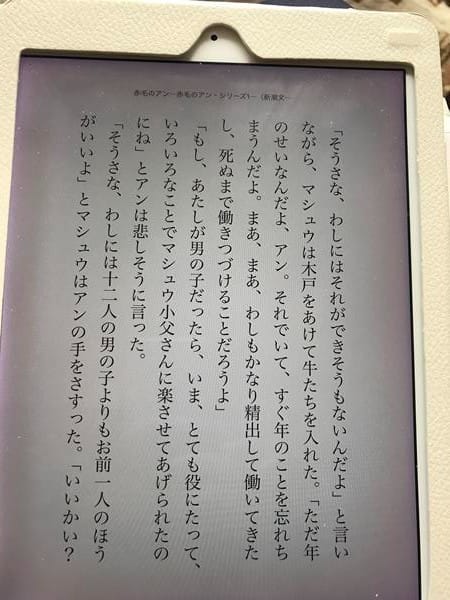 赤毛のアン―赤毛のアン・シリーズ1―（新潮文…
「そうさな、わしにはそれができそうもないんだよ」と言い
ながら、マシュウは木戸をあけて牛たちを入れた。「ただ年
のせいなんだよ、アン。それでいて、すぐ年のことを忘れち
まうんだよ。まあ、まあ、わしもかなり精出して働いてきた
し、死ぬまで働きつづけることだろうよ」
「もし、あたしが男の子だったら、いま、とても役にたって、
いろいろなことでマシュウ小父さんに楽させてあげられたの
にね」とアンは悲しそうに言った。
「そうさな、わしには十二人の男の子よりもお前一人のほう
がいいよ」とマシュウはアンの手をさすった。「いいかい？